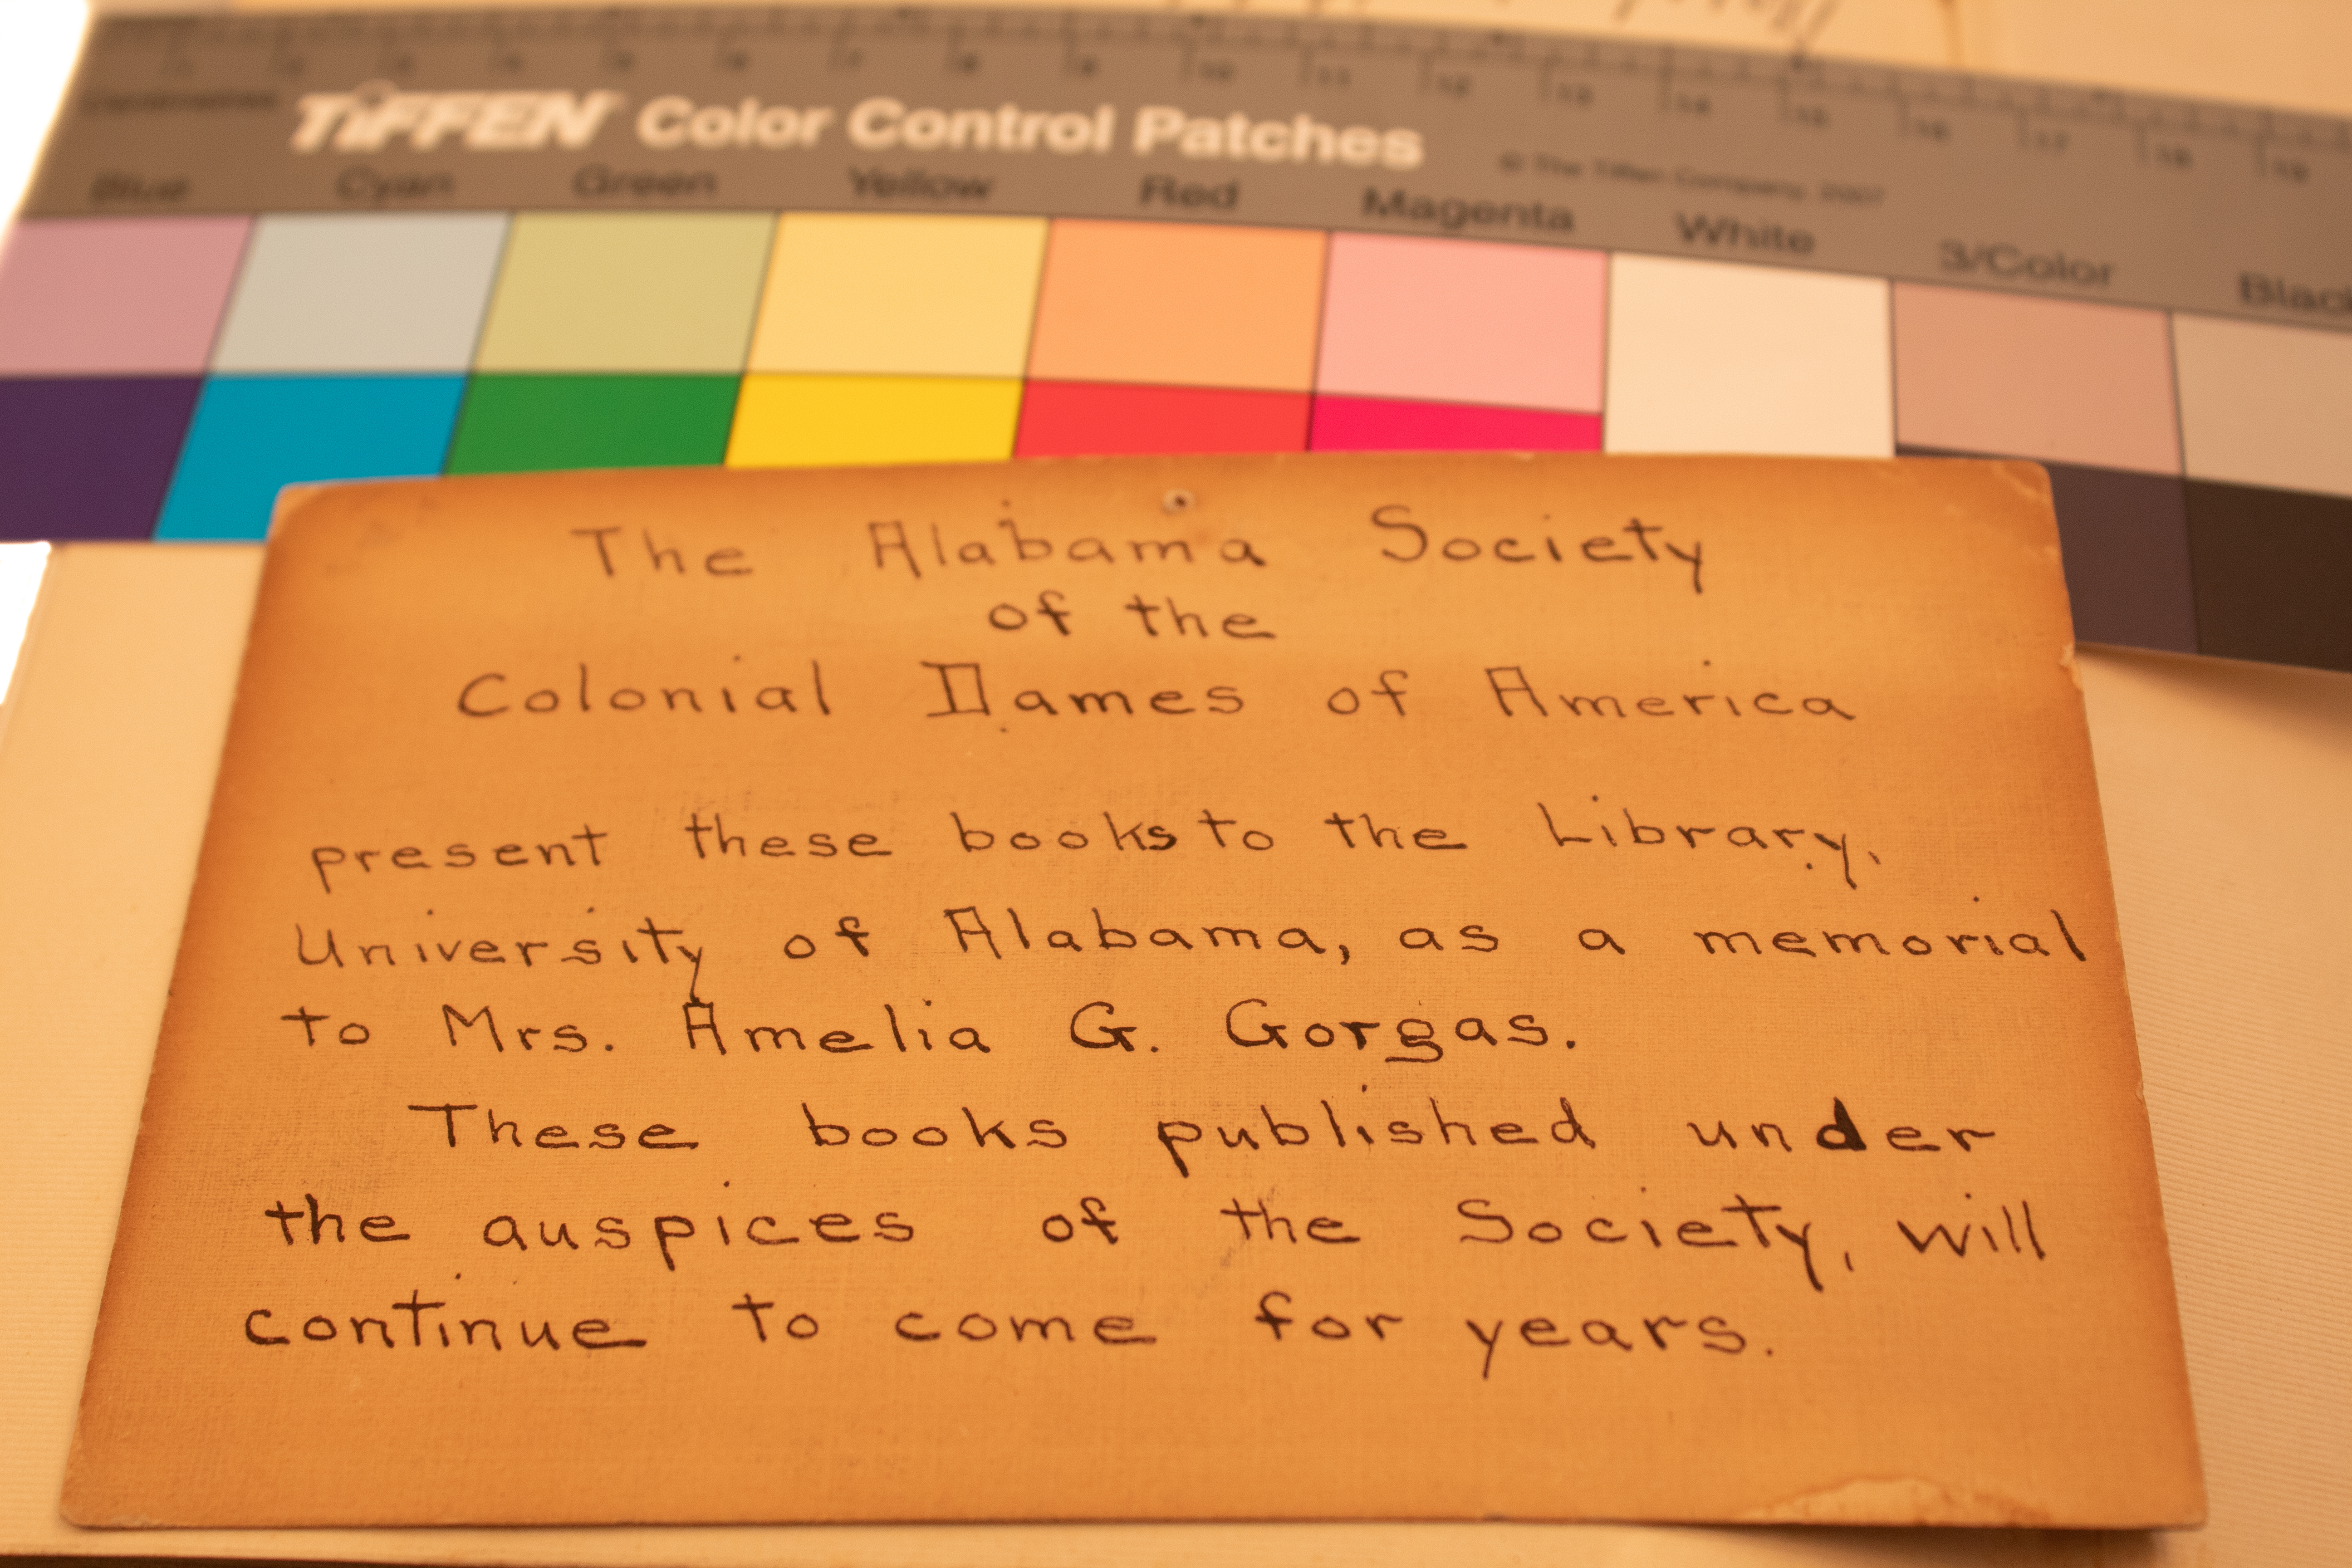 1 2 3 4 5 6 7 8 9 10 11 12 13 14 15 16 17 18 19
TIFFEN Color Control Patches
© The Tiffen Company, 2007
Blue Cyan Green Yellow Red Magenta White 3/Color Black
The Alabama Society
of the
Colonial Dames of America
present these books to the Library,
University of Alabama, as a memorial
to Mrs. Amelia G. Gorgas.
These books published under
the auspices of the Society, will
continue to come for years.